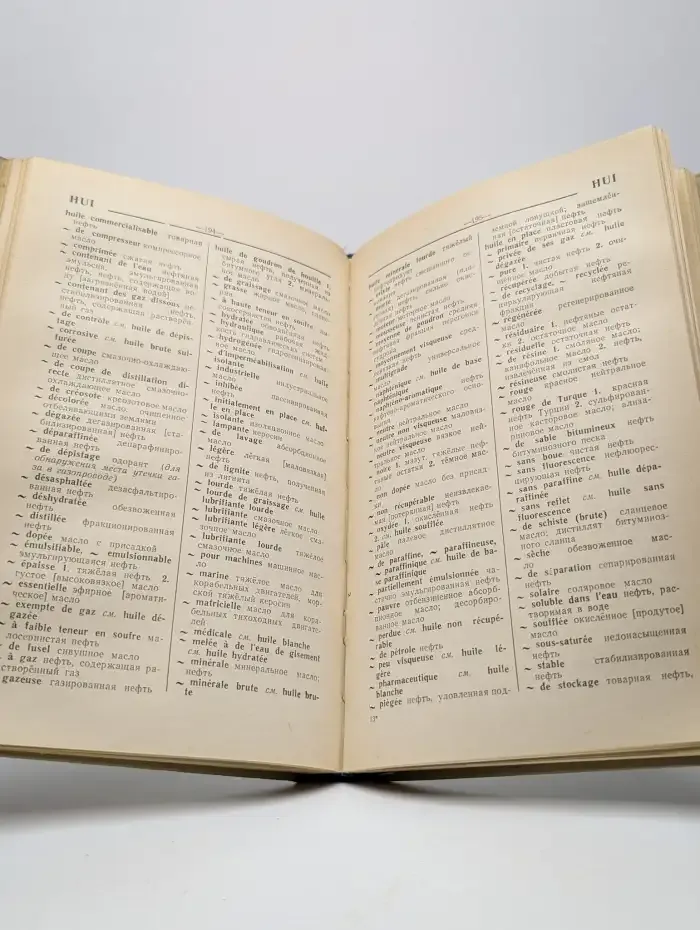 HUI
—194—
huile commercialisable товарная
нефть
~ de compresseur компрессорное
масло
~ comprimée сжатая нефть
~ contenant de l'eau нефтяная
эмульсия, эмульгированная
нефть, нефть, содержащая во-
ду [загрязнённая водой]
~ contenant des gaz dissous не-
стабилизированная нефть,
нефть, содержащая растворён-
ный газ
~ de contrôle см. huile de dépis-
tage
~ corrosive см. huile brute sul-
furée
~ de coupe смазочно-охлаждаю-
щее масло
~ de coupe de distillation di-
recte дистиллятное смазочно-
охлаждающее масло
~ de créosote креозотовое масло
~ décolorée масло, очищенное
отбеливающими землями
~ dégazée дегазированная [ста-
билизированная] нефть
~ déparaffinée депарафиниро-
ванная нефть
~ de dépistage одорант (для
обнаружения места утечки га-
за в газопроводе)
~ désasphaltée деасфальтиро-
ванная нефть
~ déshydratée обезвоженная
нефть
~ distillée фракционированная
нефть
~ dopée масло с присадкой
~ émulsifiable, ~ emulsionnable
эмульгирующаяся нефть
~ épaisse 1. тяжёлая нефть 2.
густое [высоковязкое] масло
~ essentielle эфирное [аромати-
ческое] масло
~ exempte de gaz см. huile dé-
gazée
~ à faible teneur en soufre ма-
лосернистая нефть
~ de fusel сивушное масло
~ à gaz нефть, содержащая ра-
створённый газ
~ gazeuse газированная нефть
huile de goudron de houille 1.
сырая нефть, минеральное
~ de graissage смазочное масло
~ grasse жирное масло
~ à haute teneur en soufre вы-
сокосернистая нефть
~ hydratée обводнённая нефть
~ hydraulique рабочая жид-
кость гидравлических систем
~ hydrogénée гидрогенизирован-
ное масло
~ d'imperméabilisation см. huile
isolante
~ industrielle индустриальное
масло
~ inhibée пассивированная
нефть
~ initialement en place см. hui-
le en place
~ isolante изоляционное масло
~ lampante керосин
~ de lavage абсорбционное
масло
~ légère лёгкая [маловязкая]
нефть
~ de lignite нефть, полученная
из лигнита
~ lourde тяжёлая нефть
~ lourde de graissage см. huile
lubrifiante lourde
~ lubrifiante смазочное масло
~ lubrifiante légère лёгкое сма-
зочное масло
~ lubrifiante lourde тяжёлое
смазочное масло
~ pour machines машинное мас-
ло
~ marine тяжёлое масло для
корабельных двигателей, мор-
ской тяжёлый керосин
~ matricielle масло для кора-
бельных тихоходных двигате-
лей
~ médicale см. huile blanche
~ melée à de l'eau de gisement
см. huile hydratée
~ minérale минеральное масло;
нефть
~ minérale brute см. huile bru-
te
HUI
—195—
huile minérale lourde тяжёлый
~ multigrade универсальное
масло
~ naphténique см. huile de base
naphténique
~ naphténique-aromatique нефть
нафтено-ароматического осно-
вания
~ neutre нейтральное масло
~ neutre non visqueuse маловяз-
кое нейтральное масло
~ neutre visqueuse вязкое ней-
тральное масло
~ noire 1. мазут, тяжёлые неф-
тяные остатки 2. тёмное мас-
ло
~ non dopée масло без присад-
ки
~ non récupérable неизвлекае-
мая [потерянная] нефть
~ oxydée 1. окислённая нефть
2. см. huile soufflée
~ pâle палевое дистиллятное
масло
~ de paraffine, ~ paraffineuse,
~ paraffinique см. huile de ba-
se paraffinique
~ partiellement émulsionnée ча-
стично эмульгированная нефть
~ pauvre отбензиненное абсорб-
ционное масло; десорбиро-
ванное масло
~ perdue см. huile non récupé-
rable
~ de pétrole нефть
~ peu visqueuse см. huile lé-
gère
~ pharmaceutique см. huile
blanche
~ piégée нефть, уловленная под-
13*
земной ловушкой; защемлён-
ная [остаточная] нефть
huile en place пластовая нефть
~ primaire первичная нефть
~ privée de ses gaz см. huile
dégazée
~ pure 1. чистая нефть 2. очи-
щенное масло
~ récupérée добытая нефть
~ de recyclage, ~ recyclée ре-
циркулирующая нефтяная
фракция
~ régénérée регенерированное
масло
~ résiduaire 1. нефтяные остат-
ки 2. остаточное масло
~ résiduelle остаточная нефть
~ de résine 1. смоляное масло,
канифольное масло 2. нефть,
извлечённая из смол
~ résineuse смолистая нефть
~ rouge красное нейтральное
масло
~ rouge de Turque 1. красная
нефть Турции 2. сульфирован-
ное касторовое масло, ализа-
риновое масло
~ de sable bitumineux нефть
битуминозного песка
~ sans boue чистая нефть
~ sans fluorescence нефлюорес-
цирующая нефть
~ sans paraffine см. huile dépa-
raffinée
~ sans reflet см. huile sans
fluorescence
~ de schiste (brute) сланцевое
масло; дистиллят битуминоз-
ного сланца
~ sèche обезвоженное мас-
ло
~ de séparation сепарированная
нефть
~ solaire соляровое масло
~ soluble dans l'eau нефть, рас-
творимая в воде
~ soufflée окислённое [продутое]
масло
~ sous-saturée недонасыщенная
нефть
~ stable стабилизированная
нефть
~ de stockage товарная нефть,